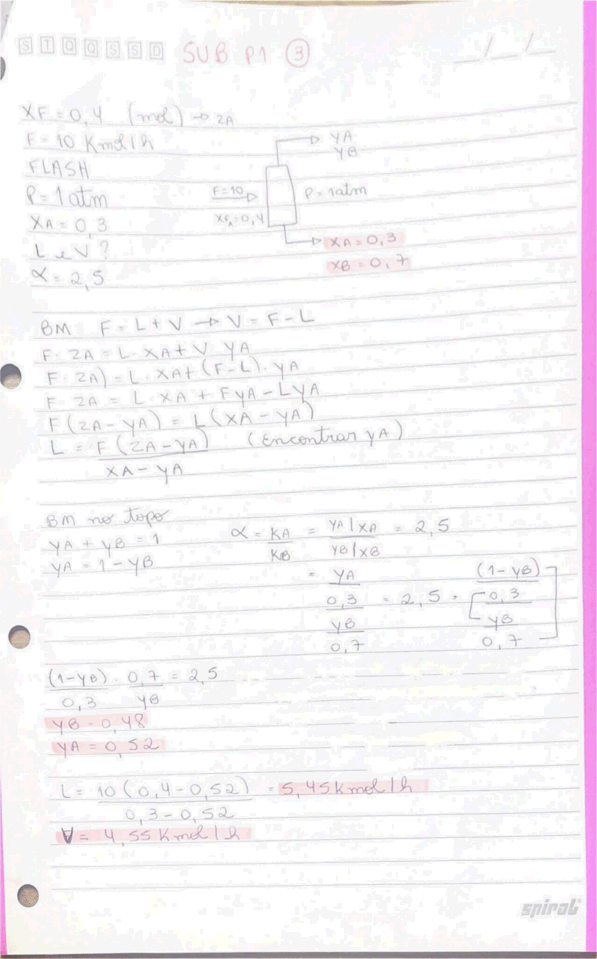 S T Q Q S S D
SUB P1 3
__/__/__
XF = 0,4 (mol) → zA
F = 10 Kmol/h
FLASH
P = 1 atm
XA = 0,3
L e V ?
α = 2,5
yA
yB
F=10
XFA = 0,4
P = 1 atm
XA = 0,3
XB = 0,7
BM: F = L + V → V = F - L
F · zA = L · XA + V · yA
F · zA) = L · XA + (F - L) · yA
F · zA = L · XA + FyA - LyA
F (zA - yA) = L (XA - yA)
L = F (zA - yA) (Encontrar yA)
XA - yA
BM no topo
yA + yB = 1
yA = 1 - yB
α = KA = yA/XA = 2,5
KB yB/XB
= yA
0,3 = 2,5 =
yB
0,7
(1 - yB)
0,3
yB
0,7
(1 - yB) · 0,7 = 2,5
0,3 yB
yB = 0,48
yA = 0,52
L = 10 (0,4 - 0,52) = 5,45 Kmol/h
0,3 - 0,52
V = 4,55 Kmol/h
spiral